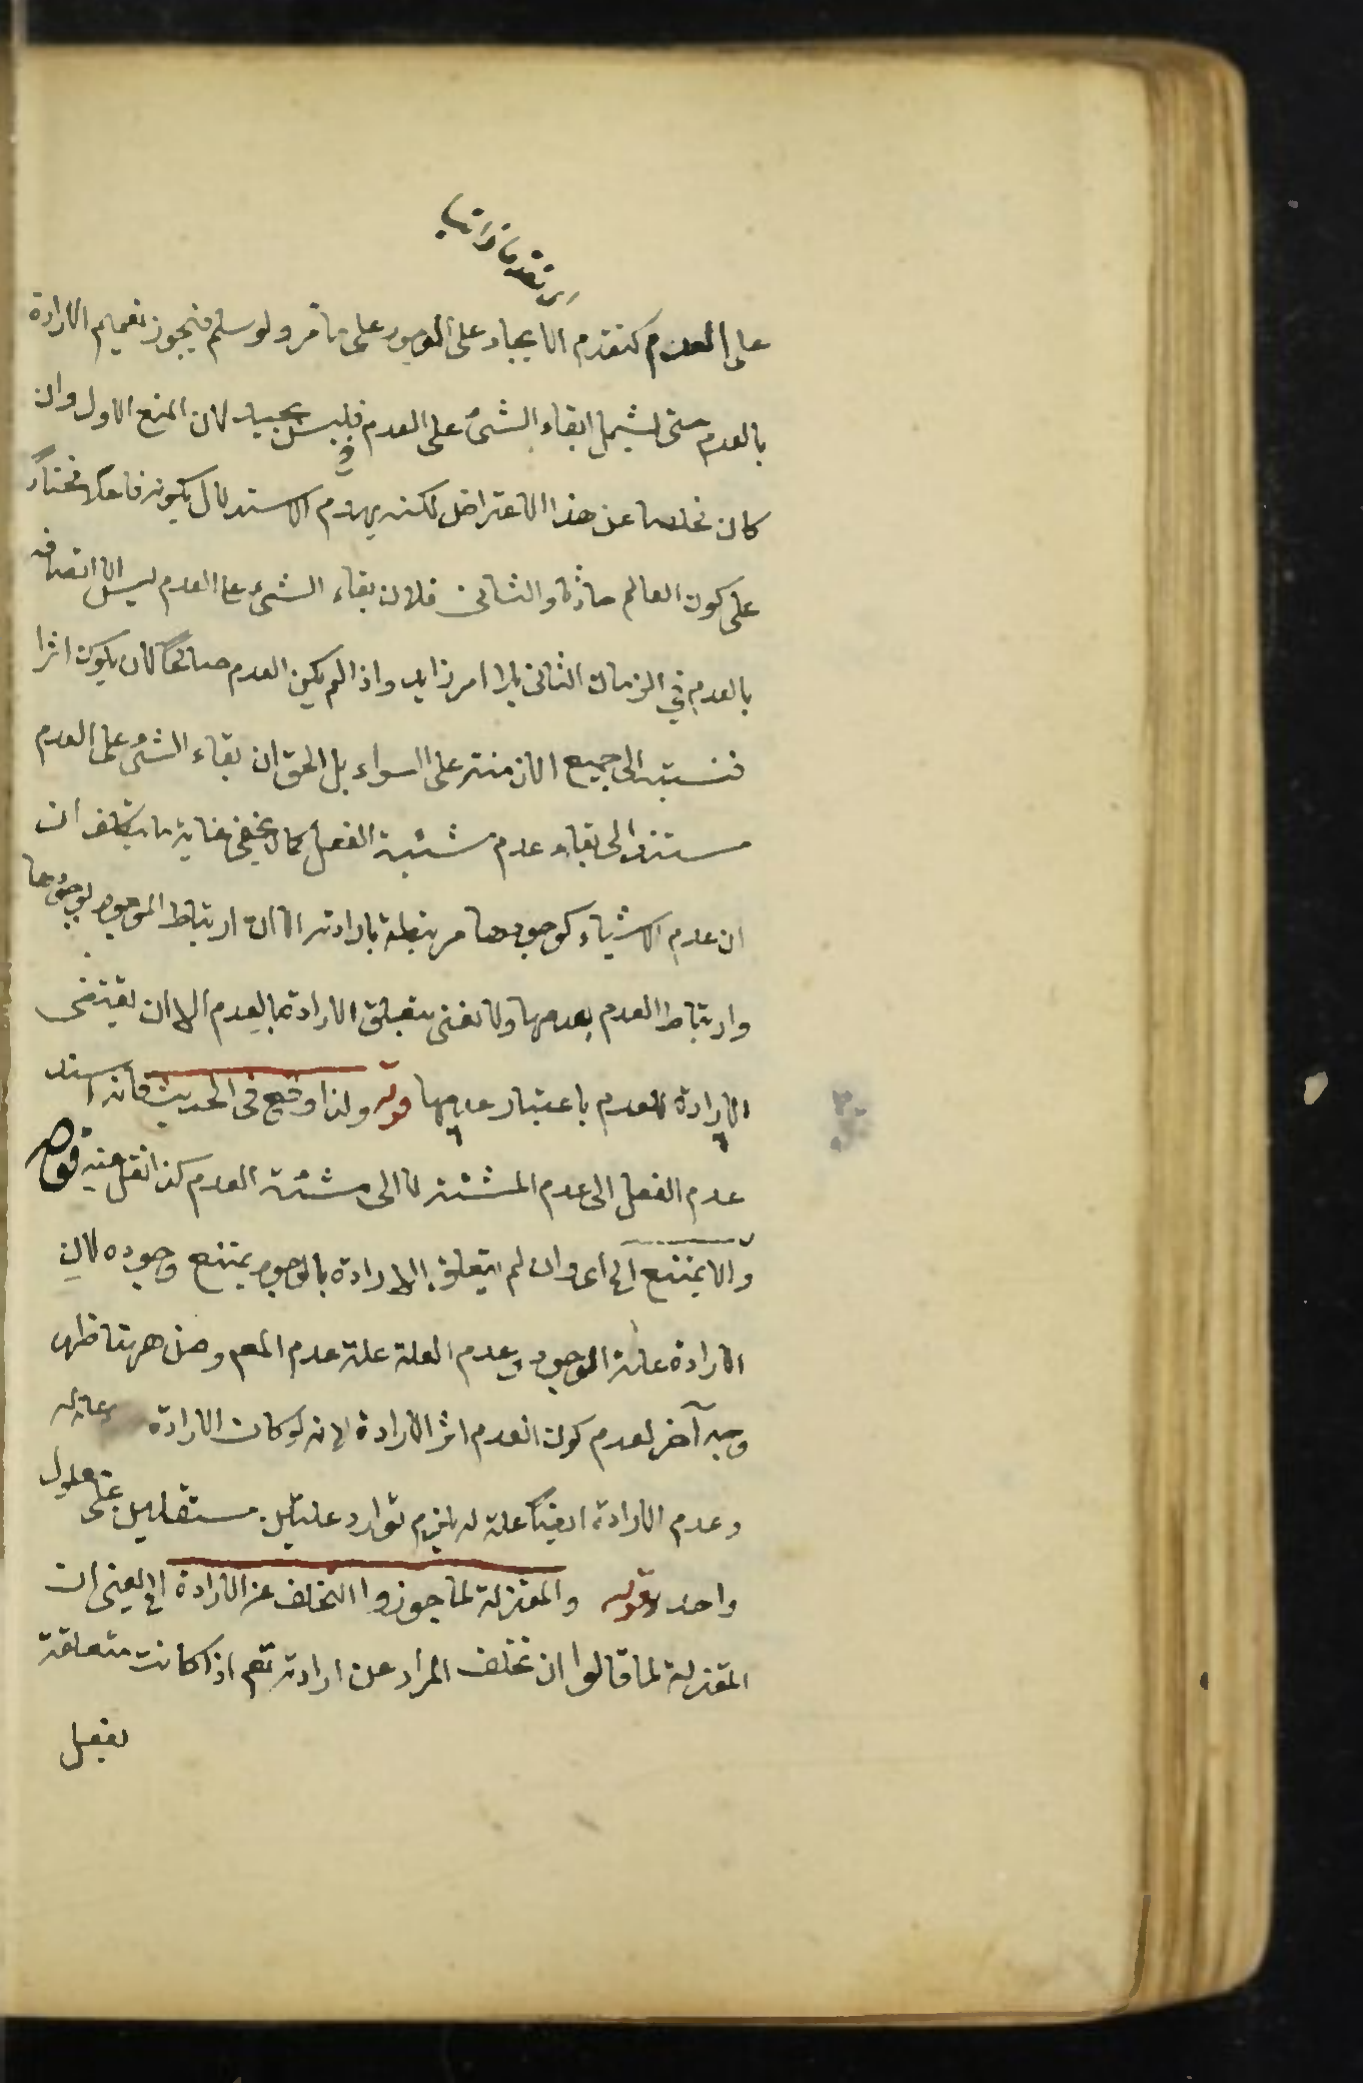 اى تقدما ذاتيا
على العدم كتقدم الايجاد على الوجود على ما مر ولو سلم فيجوز تعميم الارادة
بالعدم حتى يشمل ابقاء الشئ على العدم فليس بجيد لان المنع الاول وان
كان مخلصا عن هذا الاعتراض لكنه يهدم الاستدلال بكونه فاعلا مختاراً
على كون العالم حادثا والثانى فلان بقاء الشئ على العدم ليس الا اتصافه
بالعدم فى الزمان الثانى بلا امر زايد واذا لم يكن العدم صالحاً لان يكون اثرا
فنسبته الى جميع الازمنة على السواء بل الحق ان بقاء الشئ على العدم
مستند الى بقاء عدم مشئية الفعل كما لا يخفى غاية ما يتكلف ان
ان عدم الاشياء كوجودها مرتبطة بارادته الا ان ارتباط الوجود بوجودها
وارتباط العدم بعدمها ولا نعنى بتعلق الارادة بالعدم الا ان يقتضى
الارادة العدم باعتبار عدمها قوله ولذا وقع فى الحديث فانه اسند
عدم الفعل الى عدم المشئية لا الى مشئية العدم كذا نقل عنه قوله
والا يمتنع الخ اى وان لم يتعلق الارادة بالوجود يمتنع وجوده لان
الارادة علة الوجود وعدم العلة علة عدم المعلول ومن ههنا ظهر
وجه آخر لعدم كون العدم اثر الارادة لانه لو كانت الارادة علة له
وعدم الارادة ايضاً علة له يلزم توارد علتين مستقلتين على معلول
واحد قوله والمعتزلة لما جوزوا التخلف عن الارادة الخ يعنى ان
المعتزلة لما قالوا ان تخلف المراد عن ارادته تعم اذا كانت متعلقة
بفعل